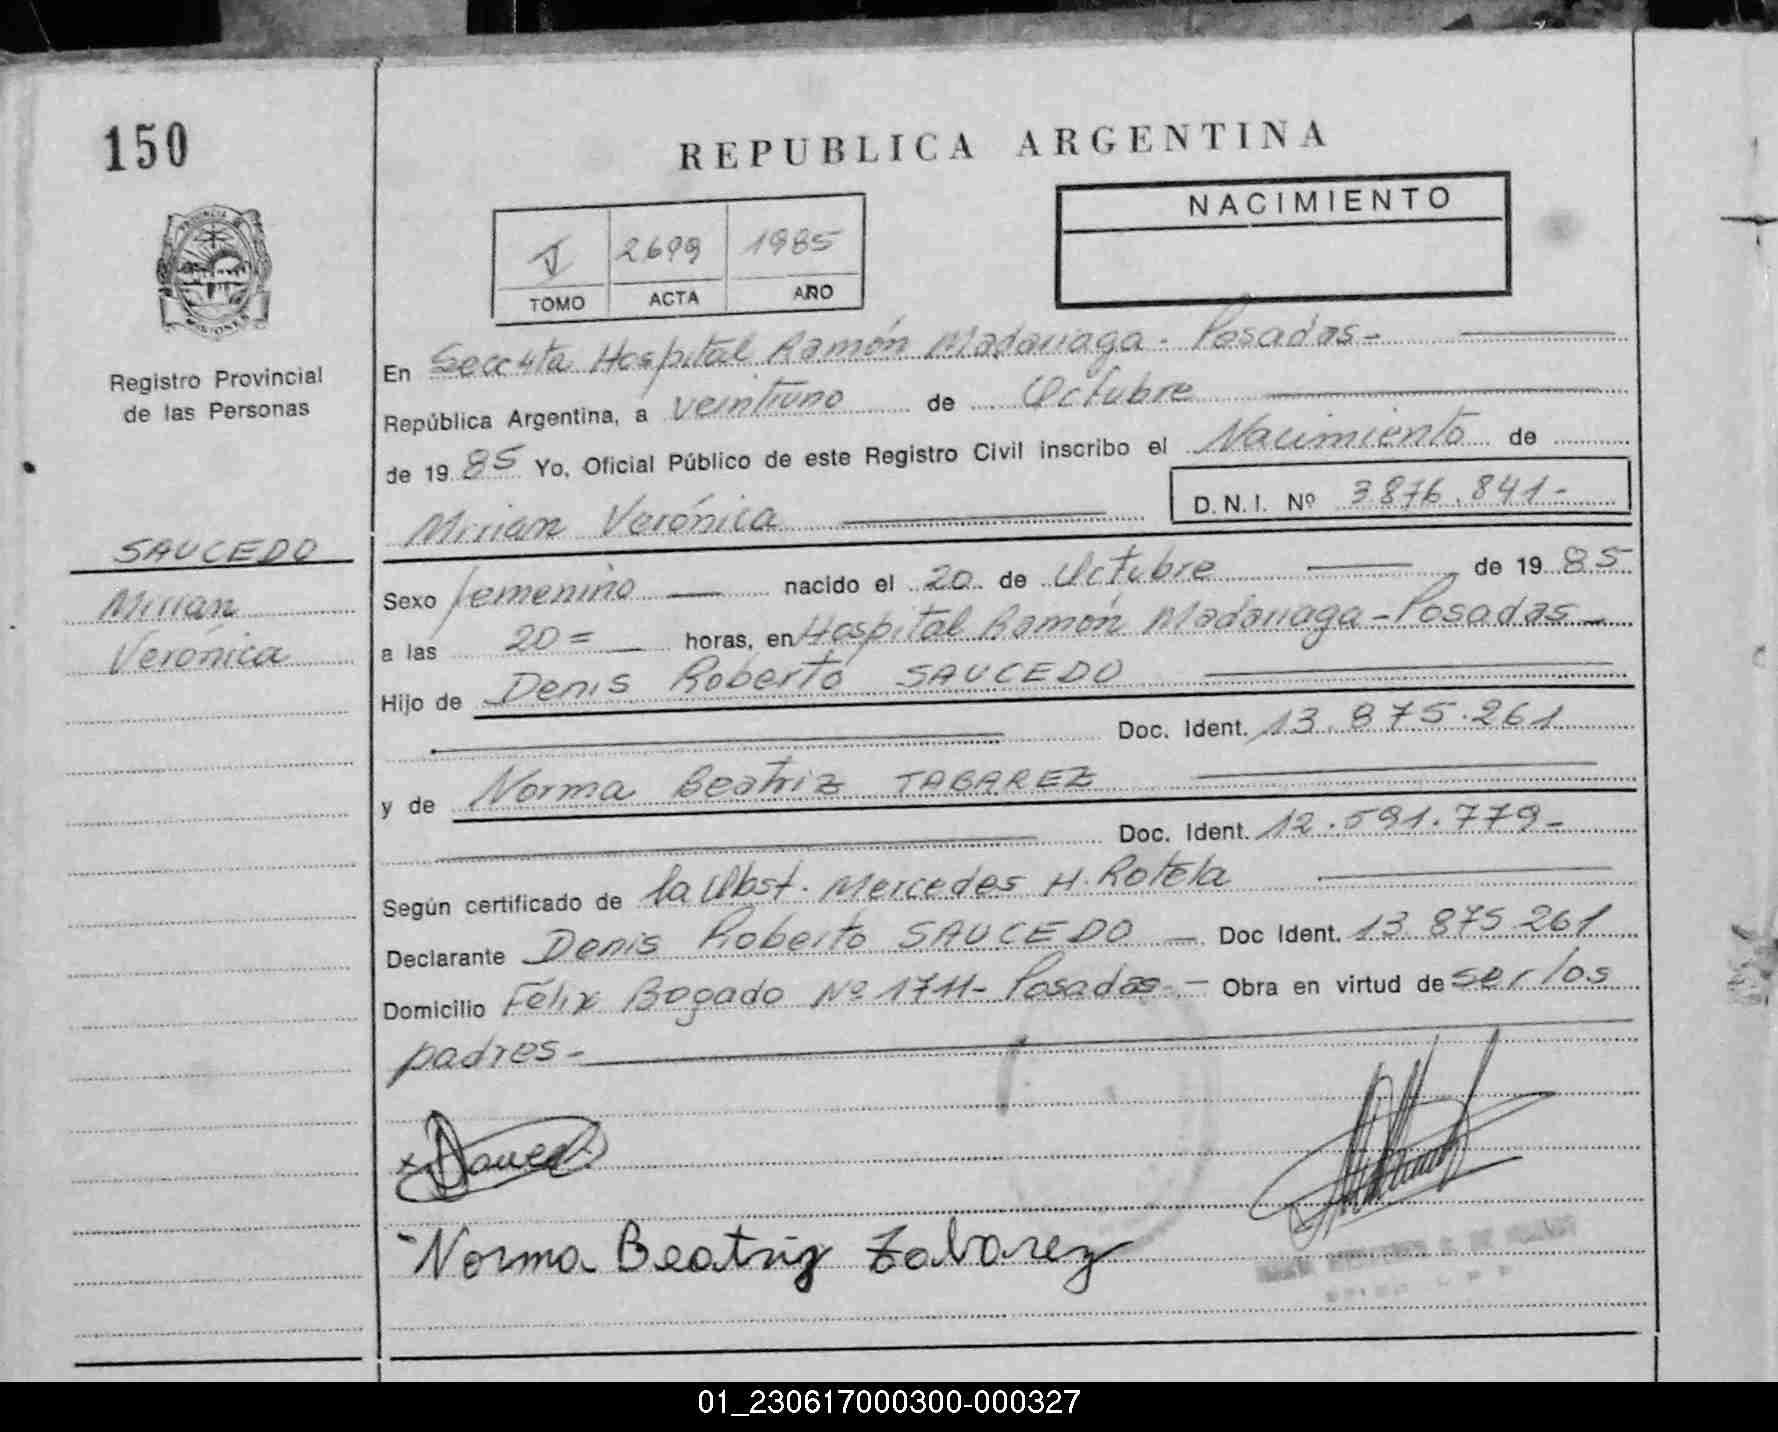 150
REPUBLICA ARGENTINA
NACIMIENTO
2699 1985
TOMO ACTA AÑO
PROVINCIA
MISIONES
Registro Provincial
de las Personas
En Secc 4ta Hospital Ramón Madariaga - Posadas -
República Argentina, a veintiuno de Octubre
de 19 85 Yo, Oficial Público de este Registro Civil inscribo el Nacimiento de
Mirian Verónica D.N.I. Nº 3876.841-
SAUCEDO
Mirian
Verónica
Sexo femenino nacido el 20 de Octubre de 19 85
a las 20= horas, en Hospital Ramón Madariaga - Posadas -
Hijo de Denis Roberto SAUCEDO
Doc. Ident. 13.875.261
y de Norma Beatriz TABAREZ
Doc. Ident. 12.591.779-
Según certificado de la Obst. Mercedes H. Rotela
Declarante Denis Roberto SAUCEDO - Doc Ident. 13.875.261
Domicilio Félix Bogado Nº 1711- Posadas - Obra en virtud de ser los
padres-
Norma Beatriz Tabarez
01_230617000300-000327